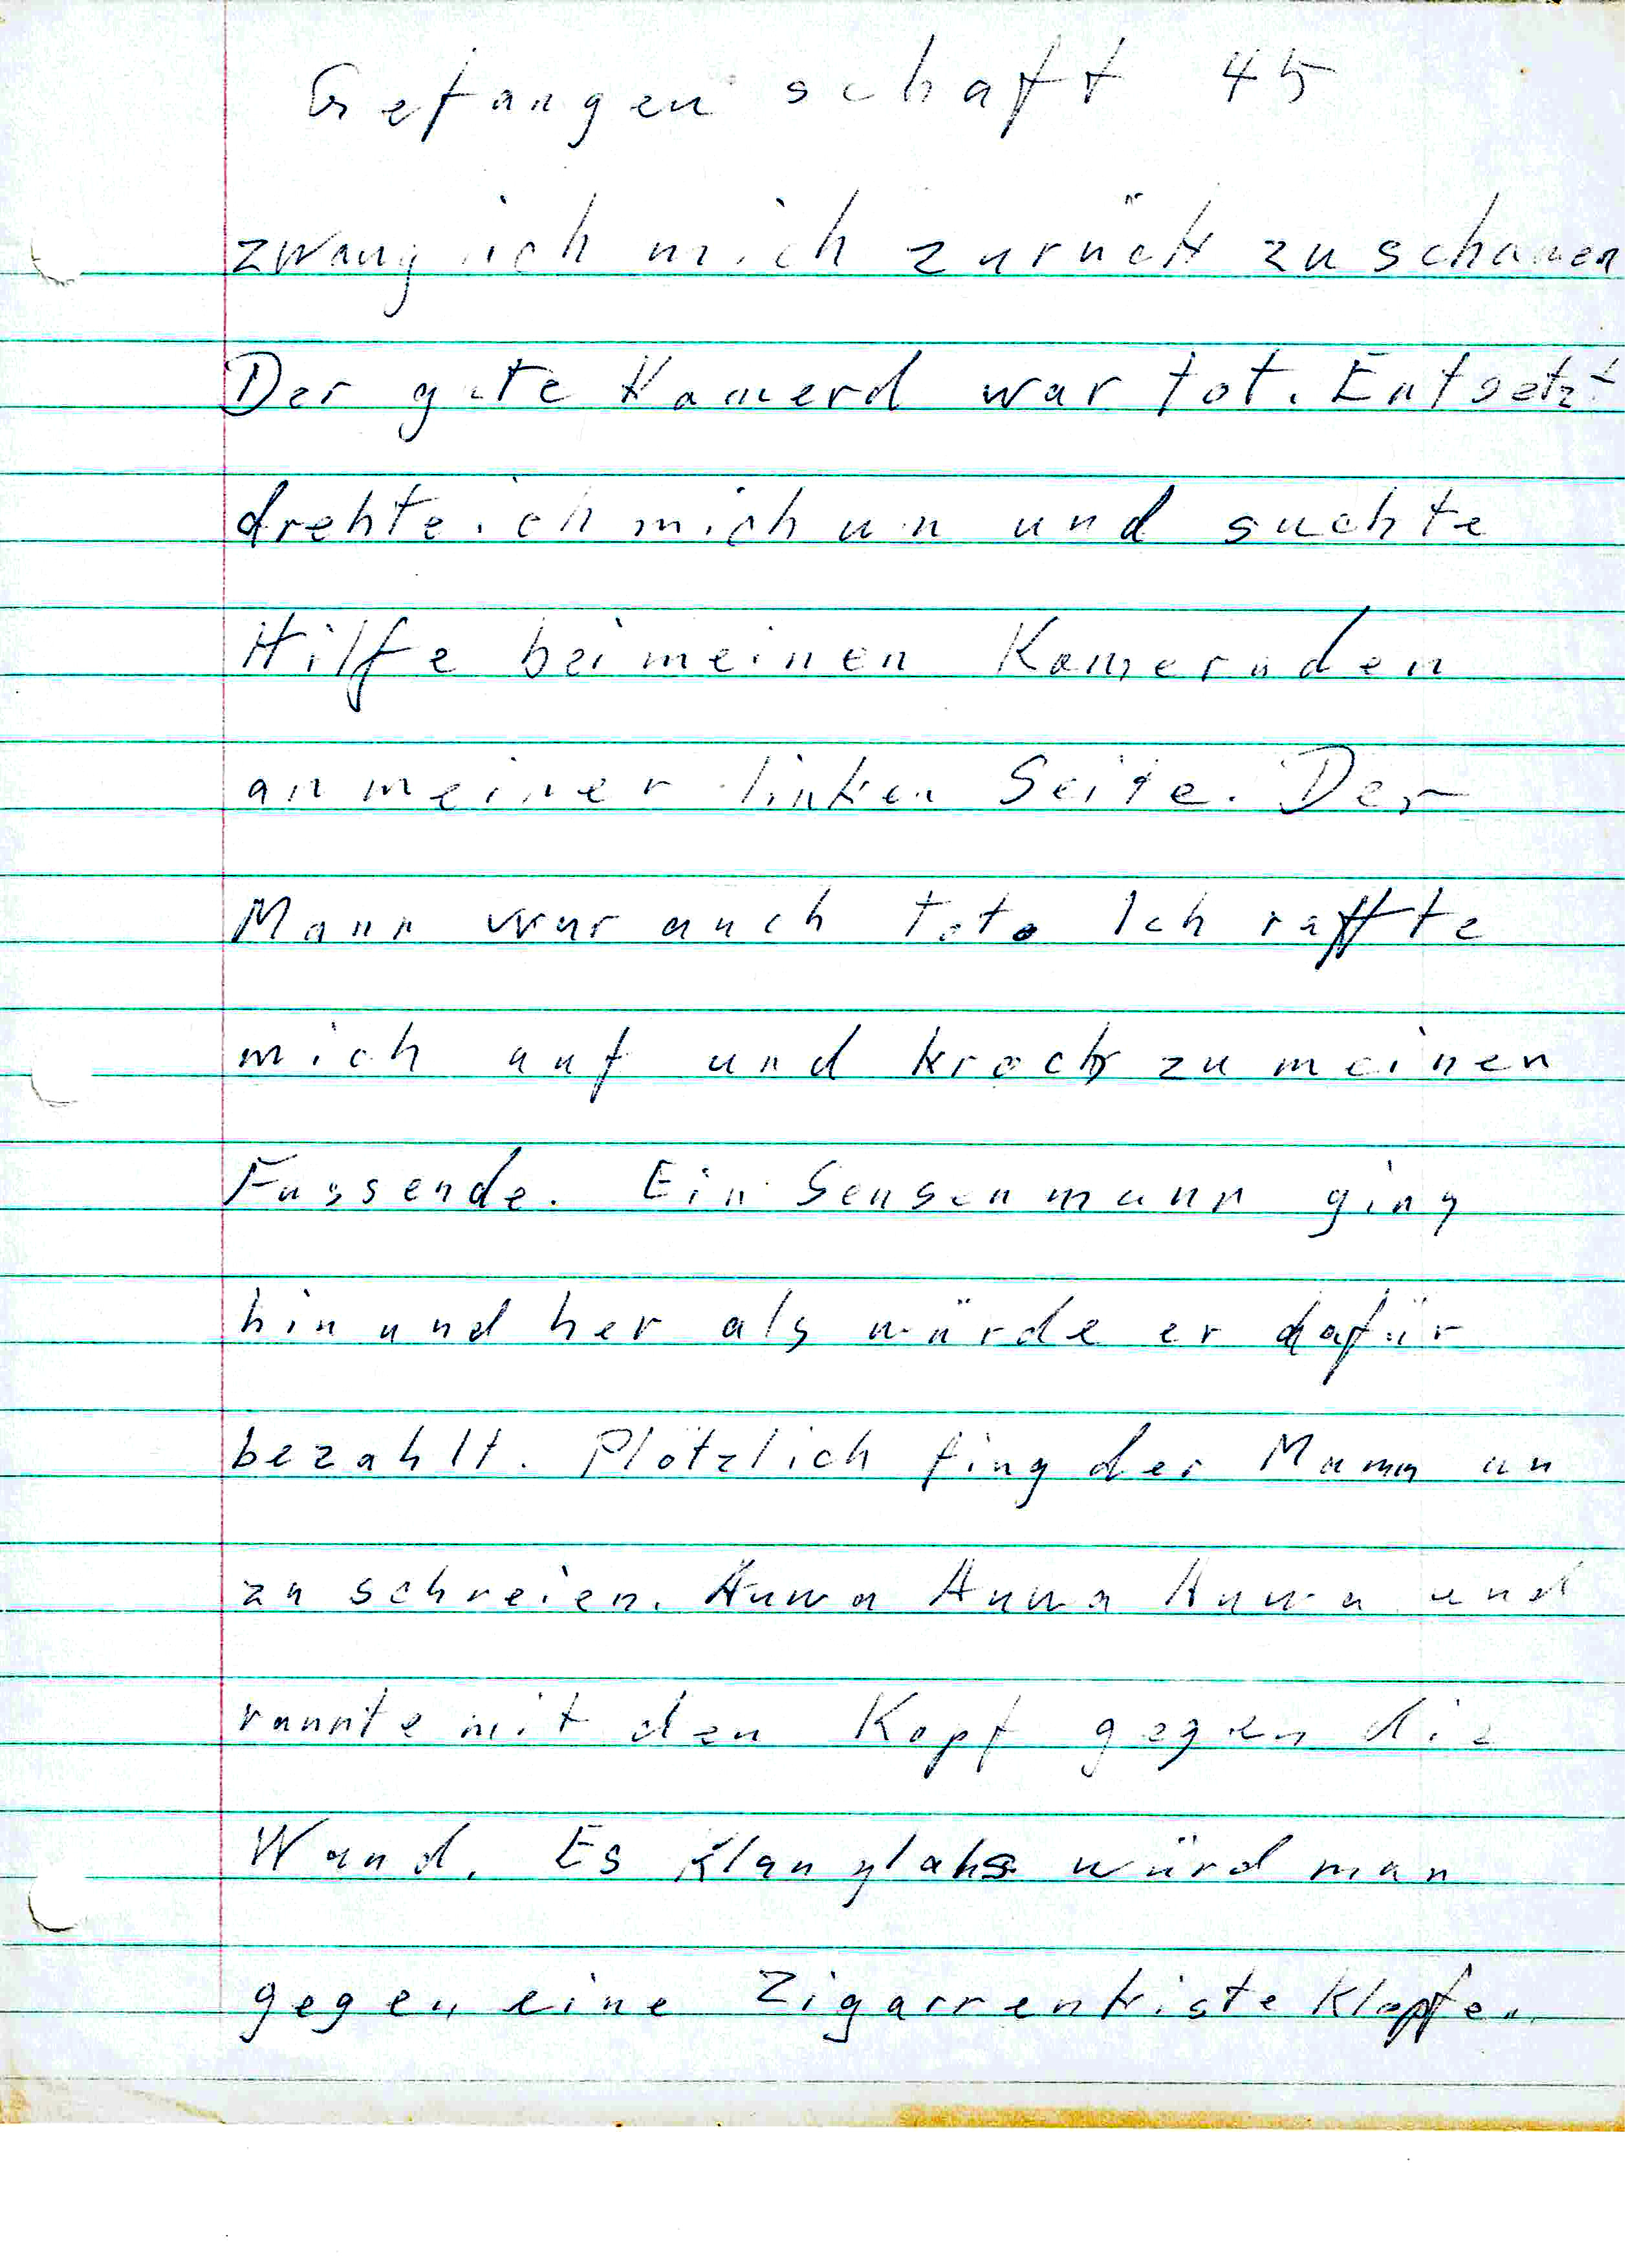 Gefangenschaft 45
zwang ich mich zurück zu schauen
Der gute Kamerd war tot. Entsetzt
drehte ich mich um und suchte
Hilfe bei meinen Kameraden
an meiner linken Seite. Der
Mann war auch tot. Ich raffte
mich auf und kroch zu meinen
Fussende. Ein Sensenmann ging
hin und her als würde er dafür
bezahlt. Plötzlich fing der Mann an
zu schreien. Huwa Huwa Huwa und
rannte mit den Kopf gegen die
Wand. Es klang lahs würd man
gegen eine Zigarrenkiste klopfen